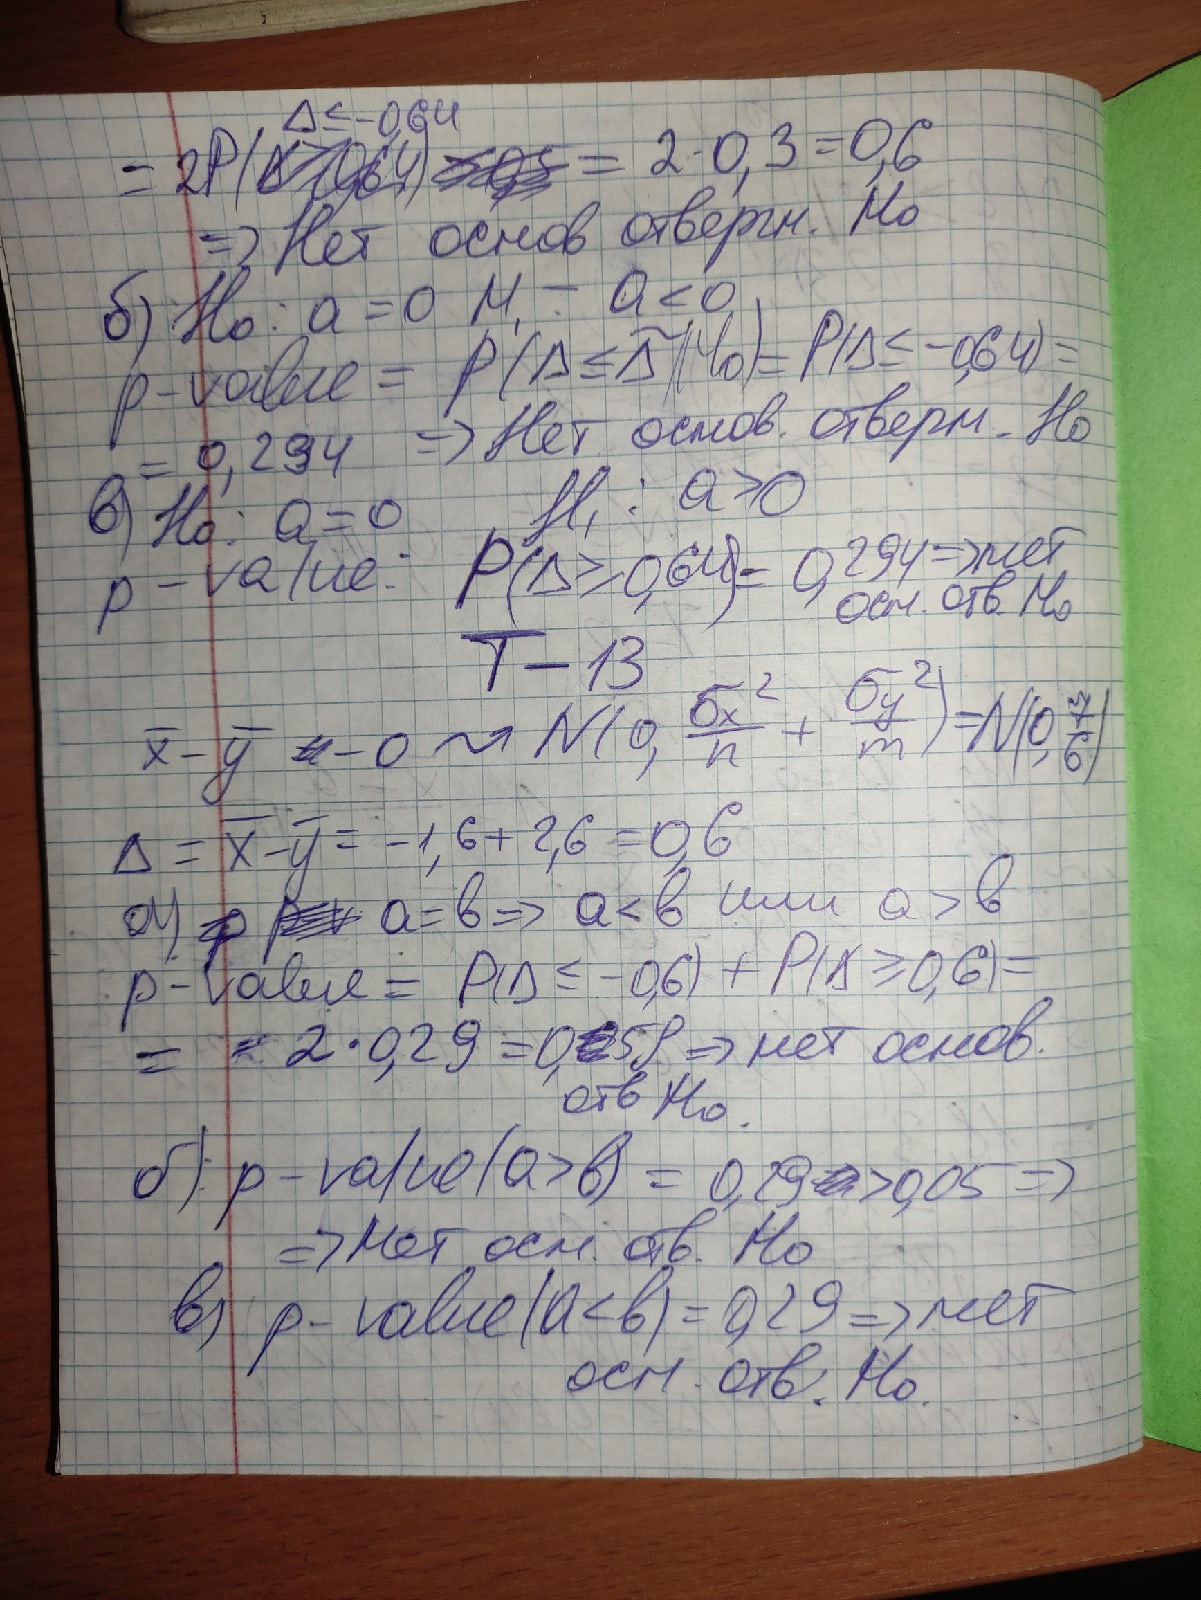 Δ ≤ -0,64
= 2P( ) = 2·0,3 = 0,6
=> Нет основ отвергн. H₀
б) H₀: a = 0 H₁ - a < 0
p-value = P(Δ ≤ Δ̃ | H₀) = P(Δ ≤ -0,64) =
= 0,294 => Нет основ. отверн. H₀
в) H₀: a = 0 H₁: a > 0
p-value: P(Δ ≥ 0,64) = 0,294 => нет
осн. отв. H₀
T-13
x̄ - ȳ - 0 ⇝ N(0, σx²/n + σy²/m) = N(0, 7/6)
Δ = x̄ - ȳ = -1,6 + 2,6 = 0,6
а) a = b => a < b или a > b
p-value = P(Δ ≤ -0,6) + P(Δ ≥ 0,6) =
= 2·0,29 = 0,58 => нет основ.
отв H₀.
б) p-value(a > b) = 0,29 > 0,05 =>
=> Нет осн. отв. H₀
в) p-value(a < b) = 0,29 => нет
осн. отв. H₀.